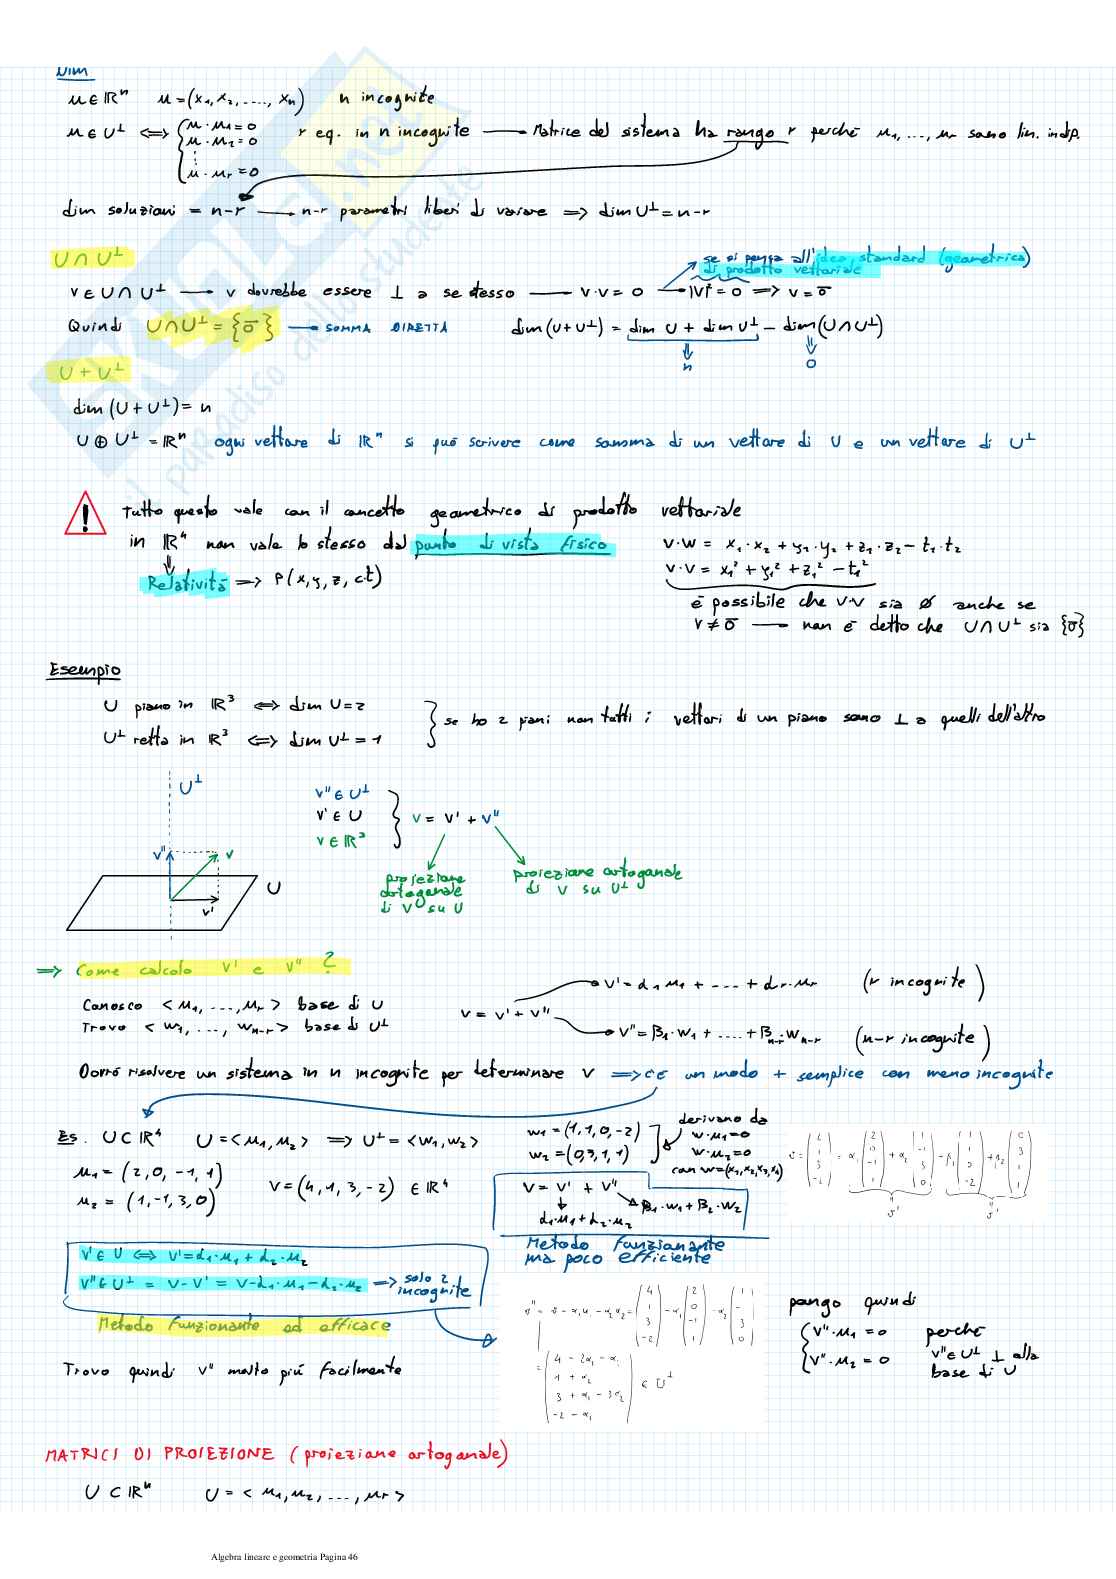 Dim
u ∈ ℝⁿ   u = (x₁, x₂, ...., xₙ)   n incognite
u ∈ U⊥ ⟺ { u·u₁ = 0   r eq. in n incognite → Matrice del sistema ha rango r perché u₁, ..., uᵣ sono lin. indip.
u·u₂ = 0
⋮
u·uᵣ = 0
dim soluzioni = n-r → n-r parametri liberi di variare ⟹ dim U⊥ = n-r
U ∩ U⊥
se si pensa all'idea standard (geometrica)
di prodotto vettoriale
v ∈ U ∩ U⊥ → v dovrebbe essere ⊥ a se stesso — v·v = 0 → |v|² = 0 ⟹ v = ō
Quindi U ∩ U⊥ = {ō} → SOMMA DIRETTA   dim(U+U⊥) = dim U + dim U⊥ - dim(U∩U⊥)
n   0
U + U⊥
dim (U + U⊥) = n
U ⊕ U⊥ = ℝⁿ ogni vettore di ℝⁿ si può scrivere come somma di un vettore di U e un vettore di U⊥
! Tutto questo vale con il concetto geometrico di prodotto vettoriale
in ℝ⁴ non vale lo stesso dal punto di vista fisico
v·w = x₁·x₂ + y₁·y₂ + z₁·z₂ - t₁·t₂
Relatività ⟹ P(x, y, z, c·t)
v·v = x₁² + y₁² + z₁² - t₁²
è possibile che v·v sia 0 anche se
v ≠ ō → non è detto che U∩U⊥ sia {ō}
Esempio
U piano in ℝ³ ⟺ dim U = 2
U⊥ retta in ℝ³ ⟺ dim U⊥ = 1
} se ho 2 piani non tutti i vettori di un piano sono ⊥ a quelli dell'altro
U⊥
v'' ∈ U⊥
v' ∈ U
v ∈ ℝ³
} v = v' + v''
v''   v
v'   U
proiezione ortogonale di v su U
proiezione ortogonale di v su U⊥
⟹ Come calcolo v' e v'' ?
Conosco <u₁, ..., uᵣ> base di U
Trovo <w₁, ..., wₙ₋ᵣ> base di U⊥
v = v' + v''
v' = α₁u₁ + .... + αᵣ·uᵣ   (r incognite)
v'' = β₁·w₁ + .... + βₙ₋ᵣ·wₙ₋ᵣ   (n-r incognite)
Dovrò risolvere un sistema in n incognite per determinare v ⟹ c'è un modo + semplice con meno incognite
Es. U ⊂ ℝ⁴   U = <u₁, u₂> ⟹ U⊥ = <w₁, w₂>
w₁ = (1, 1, 0, -2)
w₂ = (0, 3, 1, 1)
derivano da
w·u₁ = 0
w·u₂ = 0
con w = (x₁, x₂, x₃, x₄)
u₁ = (2, 0, -1, 1)
u₂ = (1, -1, 3, 0)
v = (4, 1, 3, -2) ∈ ℝ⁴
v = v' + v''
α₁·u₁ + α₂·u₂   β₁·w₁ + β₂·w₂
Metodo funzionante
ma poco efficiente
v' ∈ U ⟺ v' = α₁·u₁ + α₂·u₂
v'' ∈ U⊥ = v - v' = v - α₁·u₁ - α₂·u₂ ⟹ solo 2 incognite
Metodo funzionante ed efficace
Trovo quindi v'' molto più facilmente
v'' = v - α₁u₁ - α₂u₂ = (4 1 3 -2) - α₁ (2 0 -1 1) - α₂ (1 -1 3 0)
= (4 - 2α₁ - α₂
1 + α₂
3 + α₁ - 3α₂
-2 - α₁) ∈ U⊥
pongo quindi
{ v''·u₁ = 0   perché
v''·u₂ = 0   v'' ∈ U⊥ ⊥ alla
base di U
MATRICI DI PROIEZIONE (proiezione ortogonale)
U ⊂ ℝⁿ   U = <u₁, u₂, ..., uᵣ>
Algebra lineare e geometria Pagina 46